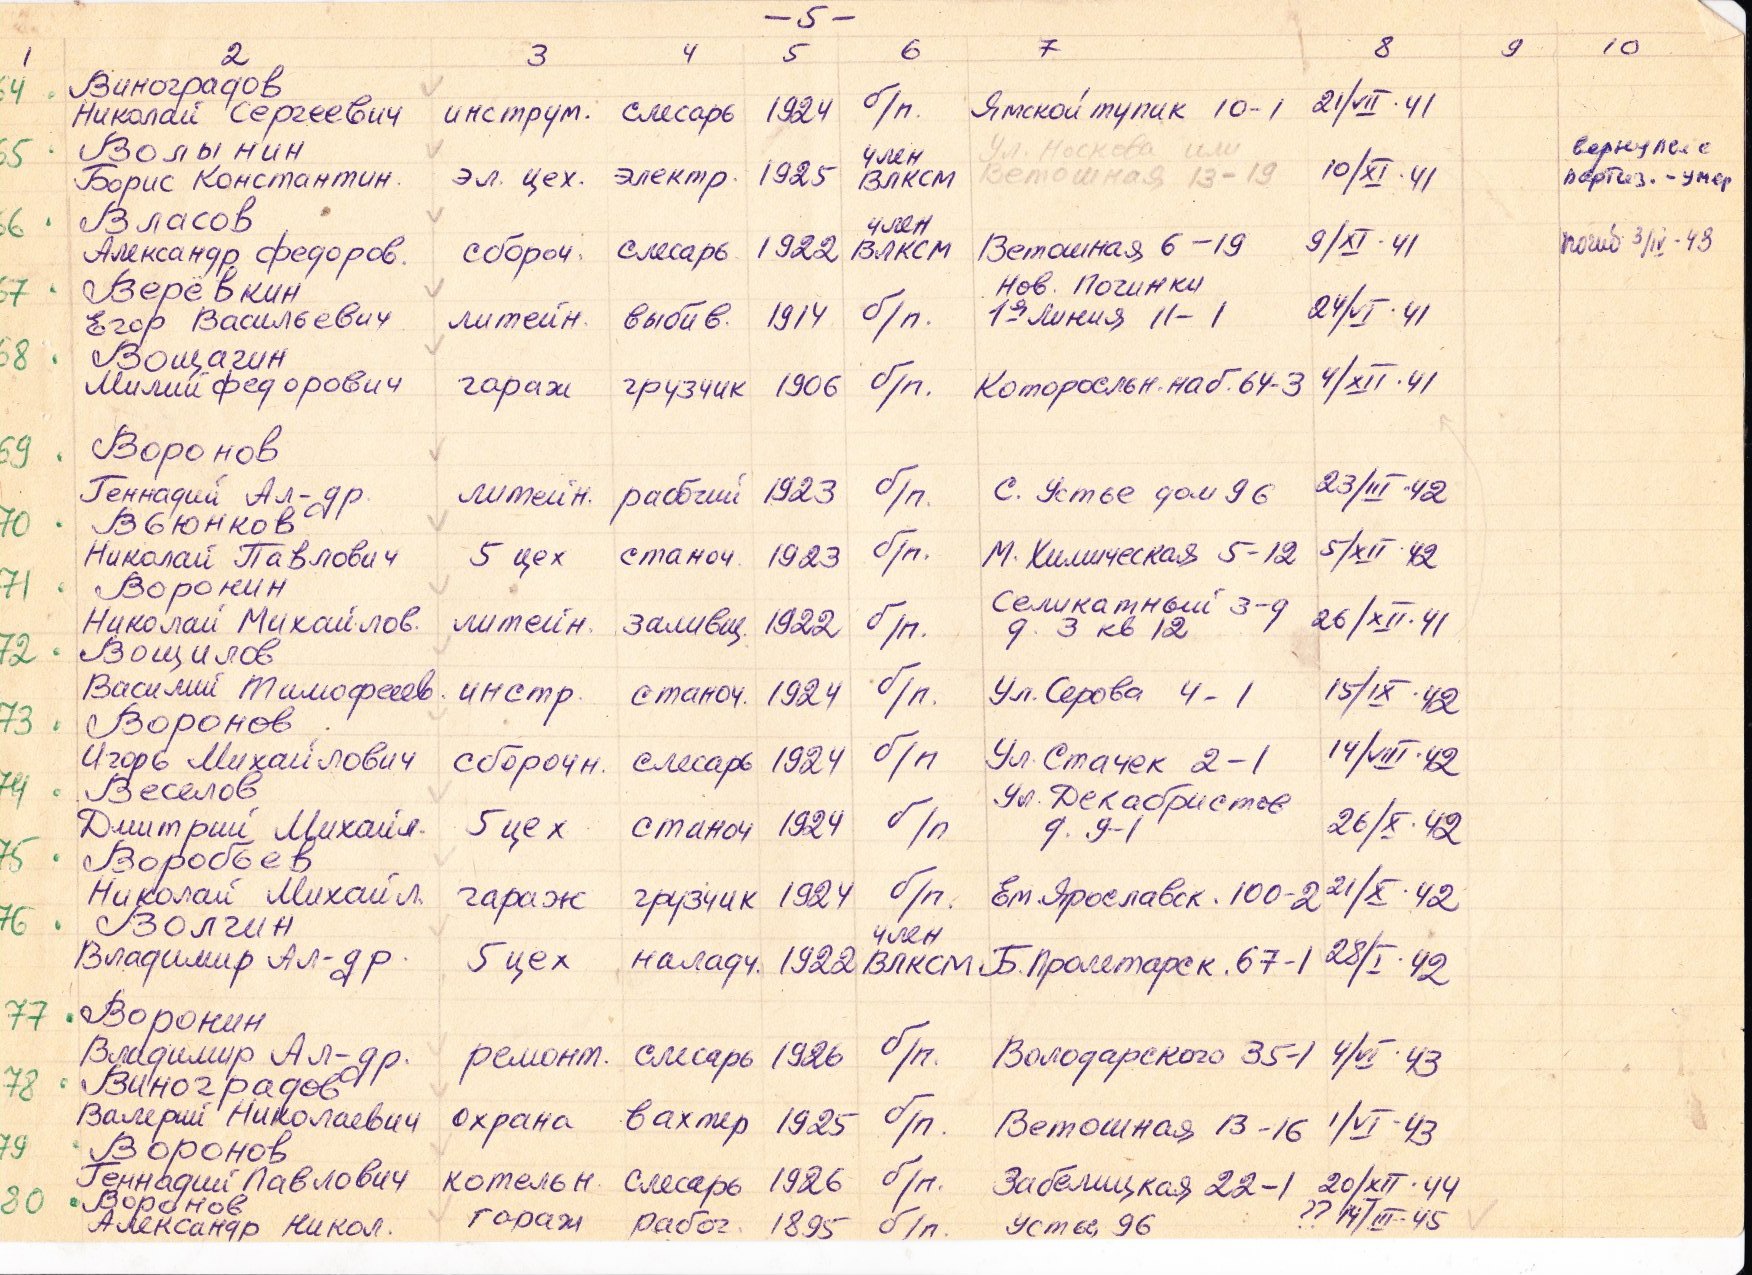 -5-
1 2 3 4 5 6 7 8 9 10
64. Виноградов
Николай Сергеевич инструм. слесарь 1924 б/п. Ямской тупик 10-1 21/VII·41
65. Волынин член Ул. Носкова или вернулся с
Борис Константин. эл. цех. электр. 1925 ВЛКСМ Ветошная 13-19 10/XI·41 партиз. - умер
66. Власов член
Александр Федоров. сбороч. слесарь 1922 ВЛКСМ Ветошная 6-19 9/XI·41 погиб 3/IV-43
67. Верёвкин Нов. Починки
Егор Васильевич литейн. выбив. 1914 б/п. 1я линия 11-1 24/VI·41
68. Вощагин
Милий Федорович гараж грузчик 1906 б/п. Которосльн. наб. 64-3 4/XII·41
69. Воронов
Геннадий Ал-др. литейн. рабочий 1923 б/п. С. Устье дом 96 23/III·42
70. Вьюнков
Николай Павлович 5 цех станоч. 1923 б/п. М. Химическая 5-12 5/XII·42
71. Воронин Селикатный З-д
Николай Михайлов. литейн. заливщ. 1922 б/п. д. 3 кв 12 26/XII·41
72. Вощилов
Василий Тимофеев. инстр. станоч. 1924 б/п. Ул. Серова 4-1 15/IX·42
73. Воронов
Игорь Михайлович сборочн. слесарь 1924 б/п Ул. Стачек 2-1 14/VIII·42
74. Веселов Ул. Декабристов
Дмитрий Михайл. 5 цех станоч 1924 б/п д. 9-1 26/X·42
75. Воробьев
Николай Михайл. гараж грузчик 1924 б/п. Ем. Ярославск. 100-2 21/X·42
76. Волгин член
Владимир Ал-др. 5 цех наладч. 1922 ВЛКСМ Б. Пролетарск. 67-1 28/I·42
77. Воронин
Владимир Ал-др. ремонт. слесарь 1926 б/п. Володарского 35-1 4/VI·43
78. Виноградов
Валерий Николаевич охрана вахтер 1925 б/п. Ветошная 13-16 1/VI·43
79. Воронов
Геннадий Павлович котельн. слесарь 1926 б/п. Забелицкая 22-1 20/XII·44
80. Воронов
Александр Никол. гараж рабоч. 1895 б/п. Устье, 96 ?? 14/III-45